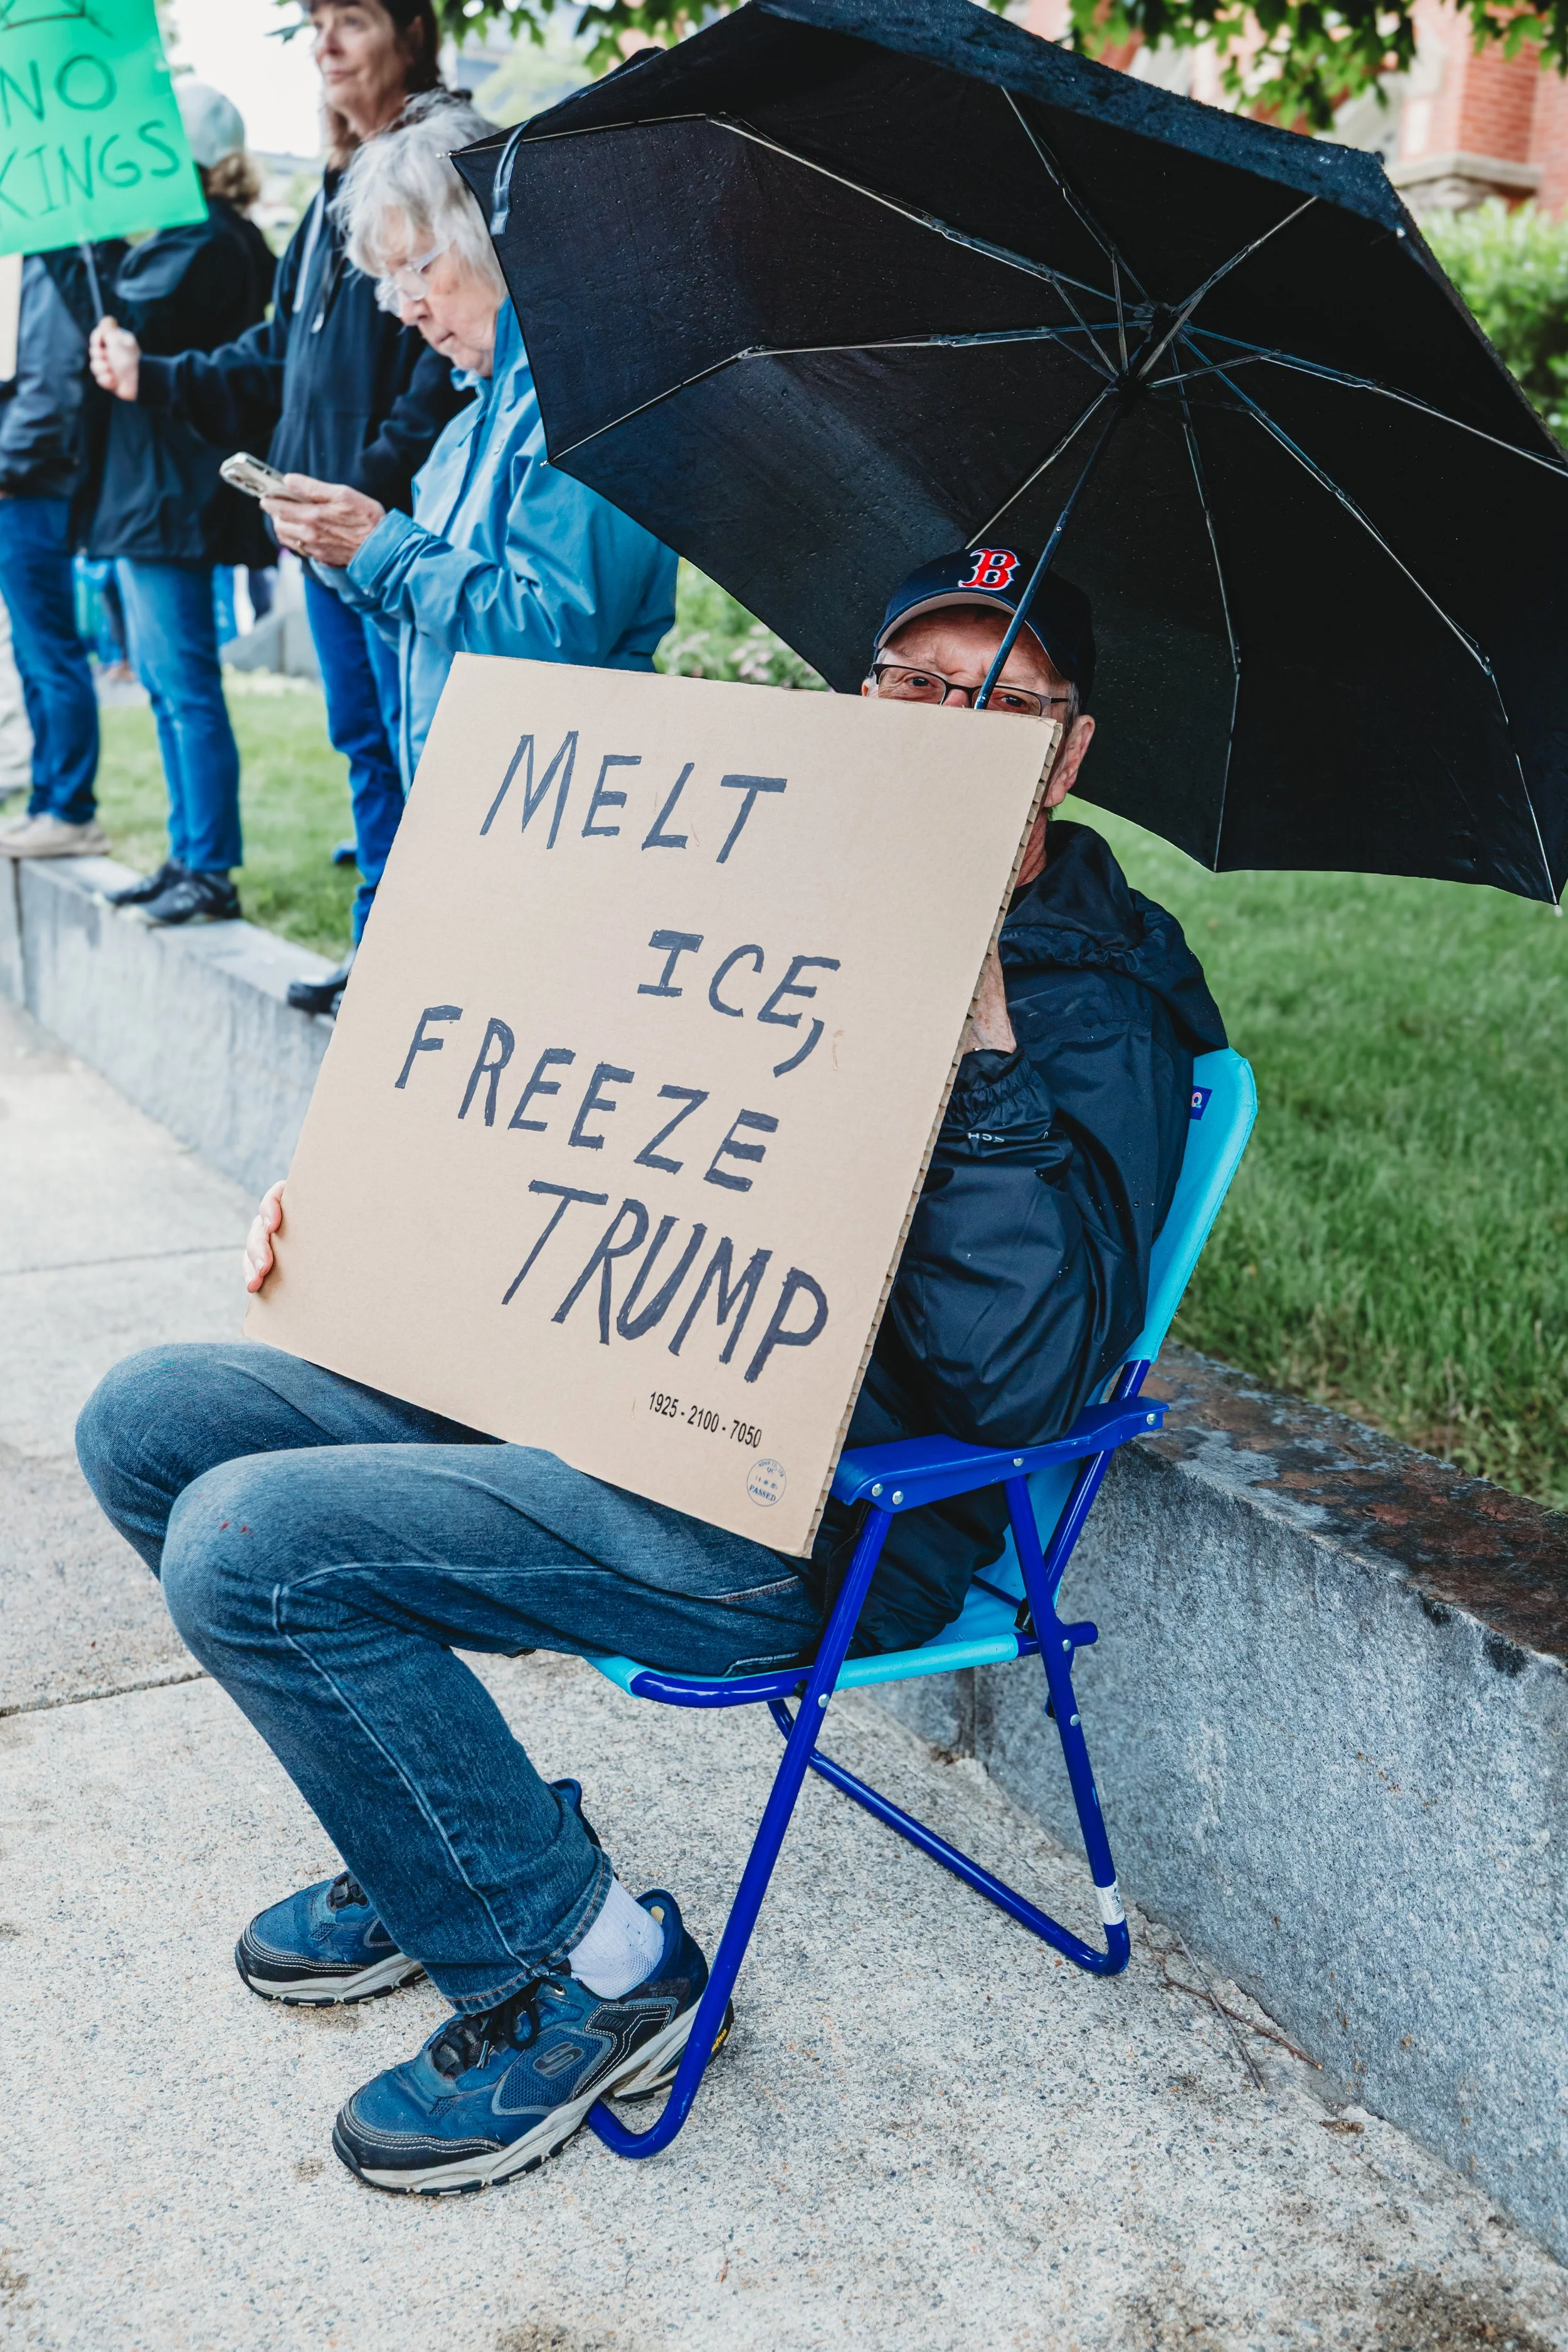 NO
KINGS
B
MELT
ICE,
FREEZE
TRUMP
1925-2100-7050
PASSED